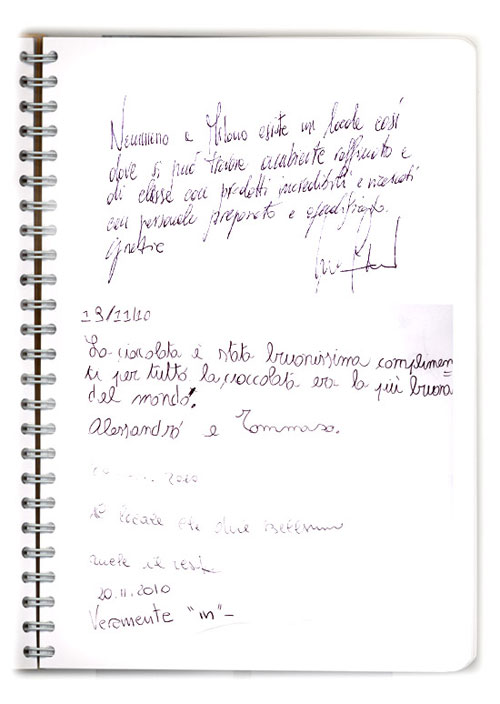 Nemmeno a Milano esiste un locale così
dove si può trovare ambiente raffinato e
di classe con prodotti incredibili e ricercati
con personale preparato e
Grazie
19/11/10
La cioccolata è stata bruonissima complimen
ti per tutto la cioccolata era la più bruona
del mondo!
Alessandro e Tommaso.
2020
locale
20.11.2010
Veramente "in"-